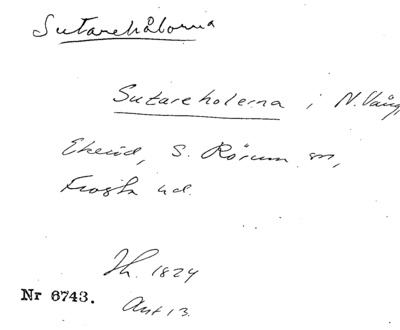 Sutarehålorna
Sutareholerna i N. Vång,
Ekeröd, S. Rörum sn,
Frosta hd.
Jh. 1824
Nr 6743.
Akt 13.